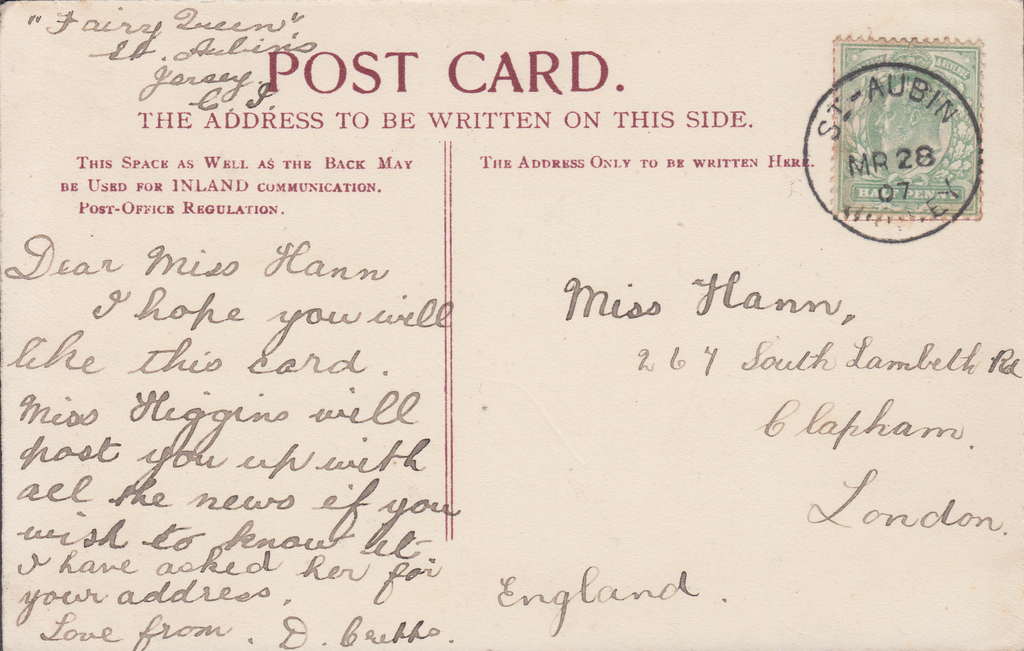 "Fairy Queen",
St. Aubin's
Jersey.
C. I.
POST CARD.
THE ADDRESS TO BE WRITTEN ON THIS SIDE.
THIS SPACE AS WELL AS THE BACK MAY
BE USED FOR INLAND COMMUNICATION.
POST-OFFICE REGULATION.
THE ADDRESS ONLY TO BE WRITTEN HERE.
ST.-AUBIN
MR 28
07
HALF PENNY
Dear Miss Hann
I hope you will
like this card.
Miss Higgins will
post you up with
all the news if you
wish to know it
I have asked her for
your address.
Love from. D.
Miss Hann,
267 South Lambeth Rd
Clapham.
London.
England.